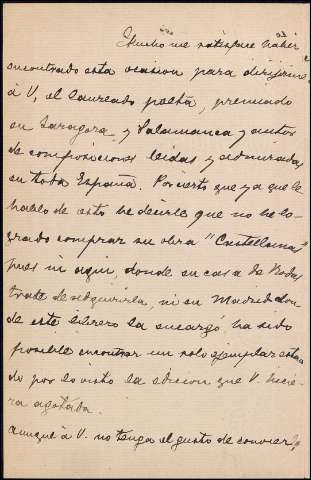 Mucho me satisface haber
encontrado esta ocasion para dirigirme
á V, el laureado poeta, premiado
en Zaragoza y Salamanca y autor
de composiciones leidas y admiradas
en toda España. Por cierto que ya que le
hablo de esto he decirle que no he lo-
grado comprar su obra "Castellanas"
pues ni aqui, donde en casa de Rodas
traté de adquirirla, ni en Madrid don
de este librero la encargó, ha sido
posible encontrar un solo ejemplar estan
do por lo visto la edicion que V. hicie-
ra agotada.
Aunque á V. no tenga el gusto de conocerle